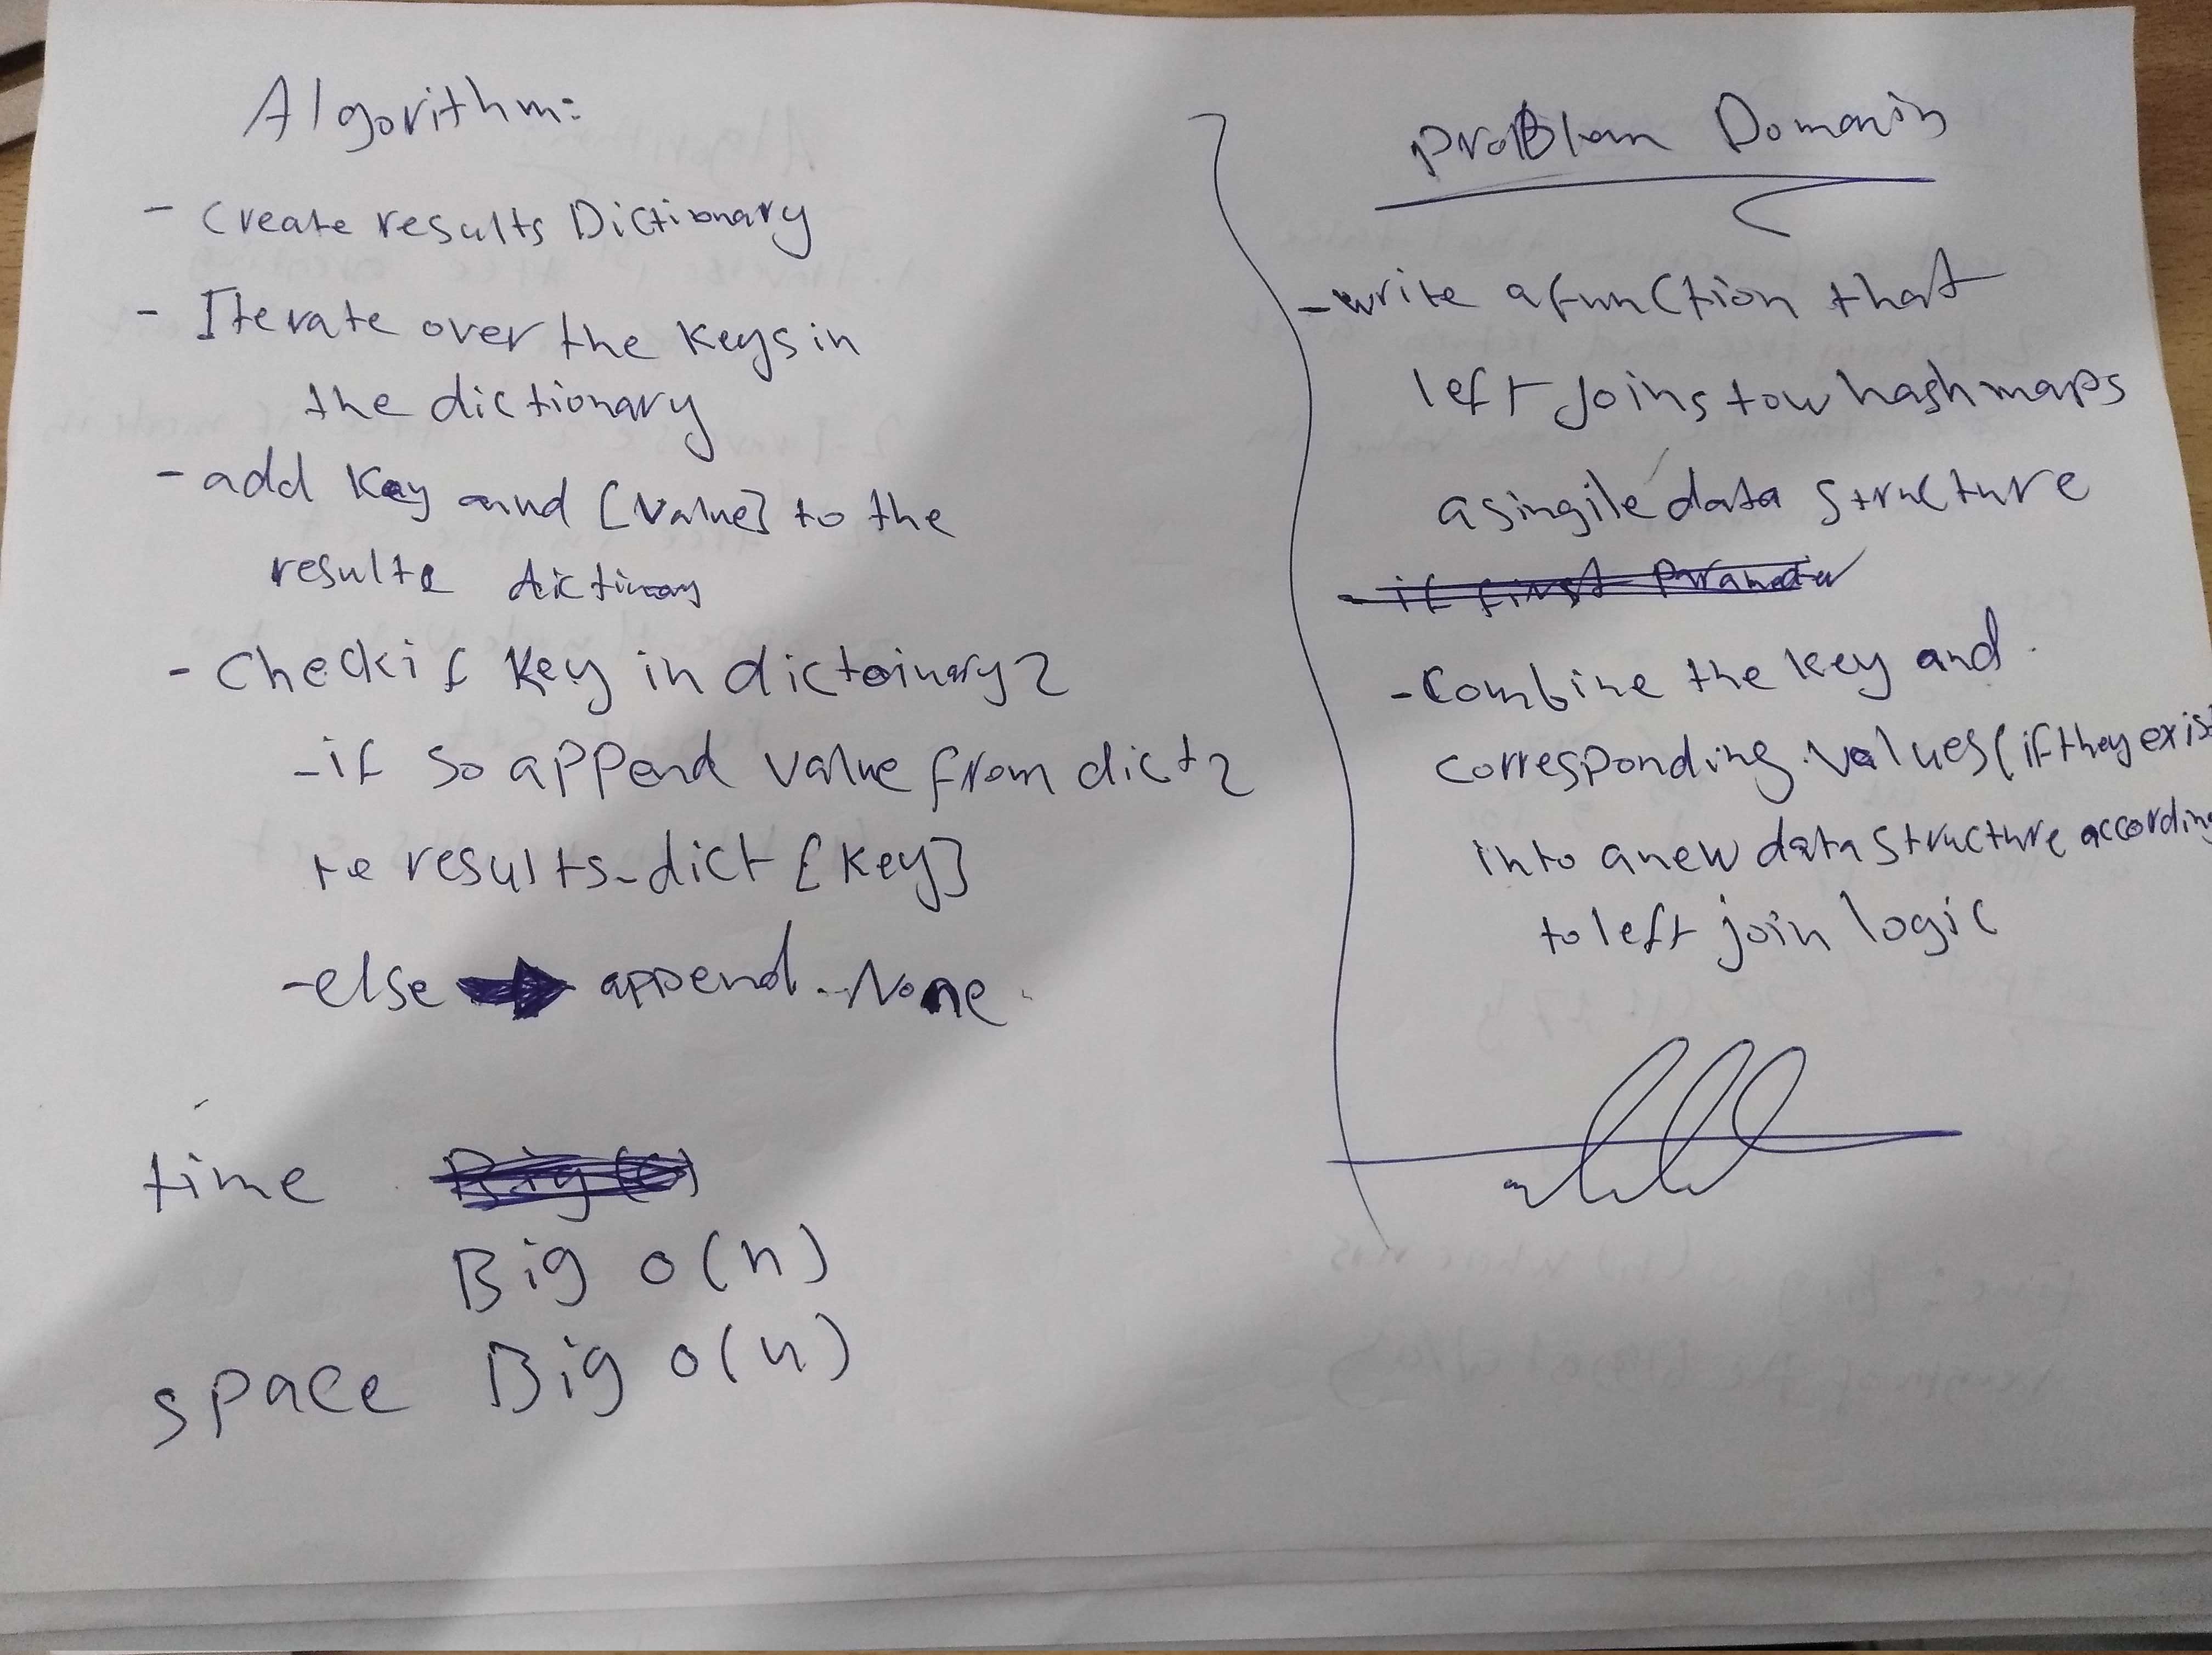 Algorithm:
- Create results Dictionary
- Iterate over the keys in
the dictionary
- add key and [value] to the
results dictinay
- Check if key in dictoinary 2
- if so append value from dict 2
te results_dict [key]
- else → append None
time
Big o(n)
space Big o(n)
problem Domain
- write a function that
left Joins tow hash maps
a singile data structure
- if first Parameter
- Combine the key and
corresponding values (if they exist
into a new data structure according
to left join logic